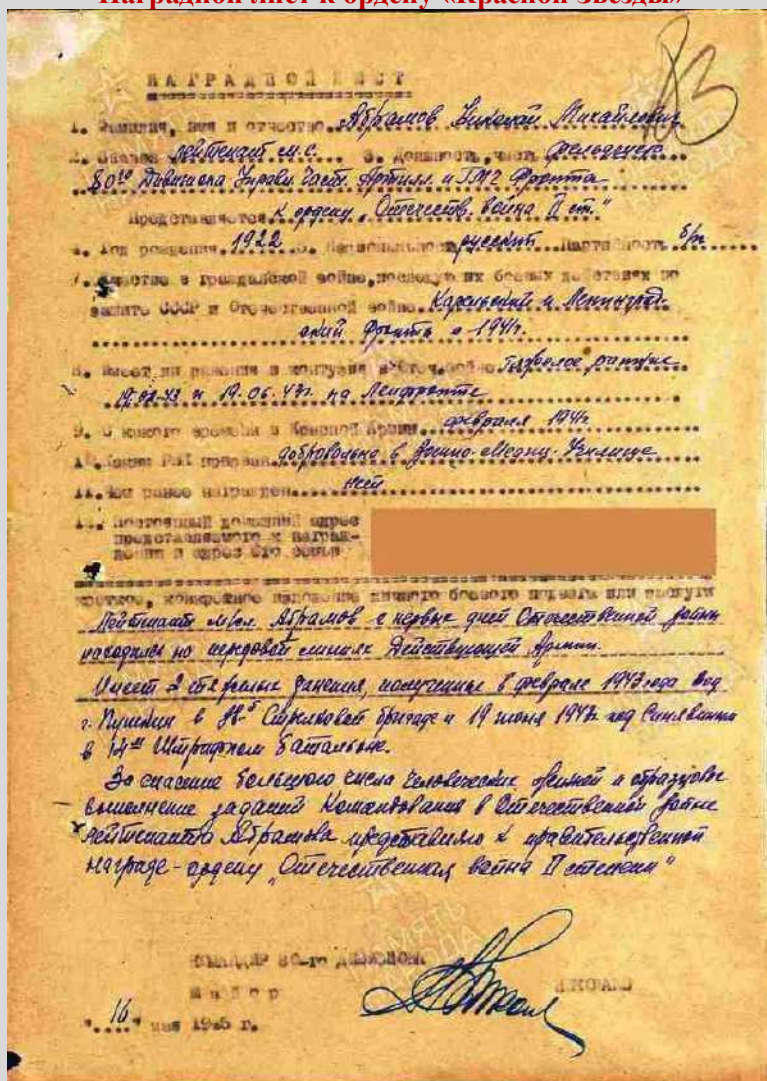 Наградной лист к ордену «Красной Звезды»
НАГРАДНОЙ ЛИСТ
1. Фамилия, имя и отчество Абрамов Николай Михайлович
2. Звание лейтенант м.с. 3. Должность, часть фельдшер
80го Дивизиона Управл. Част. Артилл. и ГМЧ Фронта
Представляется к ордену „Отечеств. война II ст."
4. Год рождения 1922 5. Национальность русский Партийность б/п
7. Участие в гражданской войне, последующих боевых действиях по
защите СССР и Отечественной войне Карельский и Ленинград.
ский фронты с 1941г.
8. Имеет ли ранения и контузии в Отеч. войне ранение
43 и 19.06.43г. на Ленфронте
9. С какого времени в Красной Армии февраля 1941г
10. Каким РВК призван добровольно в Военно-Медиц. Училище
11. Чем ранее награжден нет
12. Постоянный домашний адрес
представляемого к награж-
дению и адрес его семьи
краткое, конкретное изложение личного боевого подвига или заслуги
Лейтенант м/сл. Абрамов с первых дней Отечественной войны
находился на передовой линиях Действующей Армии.
Имеет 2 ранения, полученные в феврале 1943 года под
г. Пушкин в Стрелковой бригаде и 19 июня 1943г. под Синявиным
в 14м Штрафном батальоне.
За спасение большого числа человеческих жизней и образцовое
выполнение заданий Командования в Отечественной войне
лейтенанта Абрамова представляю к правительственной
награде - ордену „Отечественная война II степени"
КОМАНДИР 80-го ДИВИЗИОНА
Майор
"16" мая 1945 г.
ПАМЯТЬ
НАРОДА